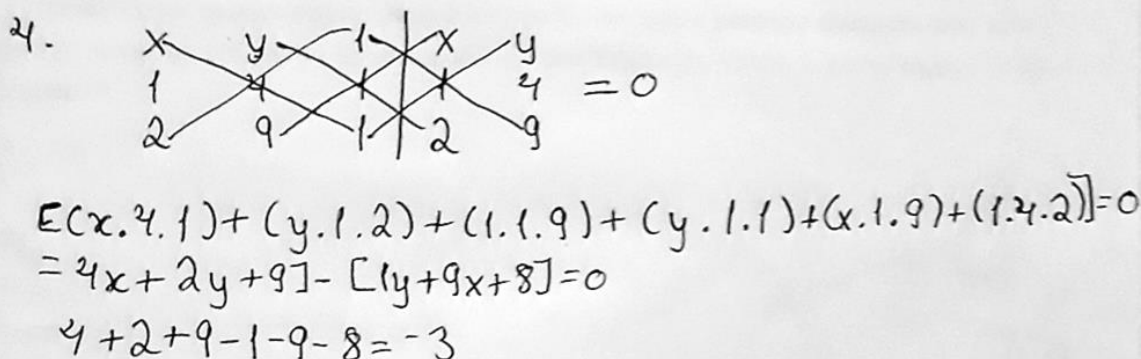 4. x y 1 | x y
1 4 1 | 1 4 = 0
2 9 1 | 2 9
E(x.4.1)+(y.1.2)+(1.1.9)+(y.1.1)+(x.1.9)+(1.4.2)]=0
=4x+2y+9]-[1y+9x+8]=0
4+2+9-1-9-8=-3